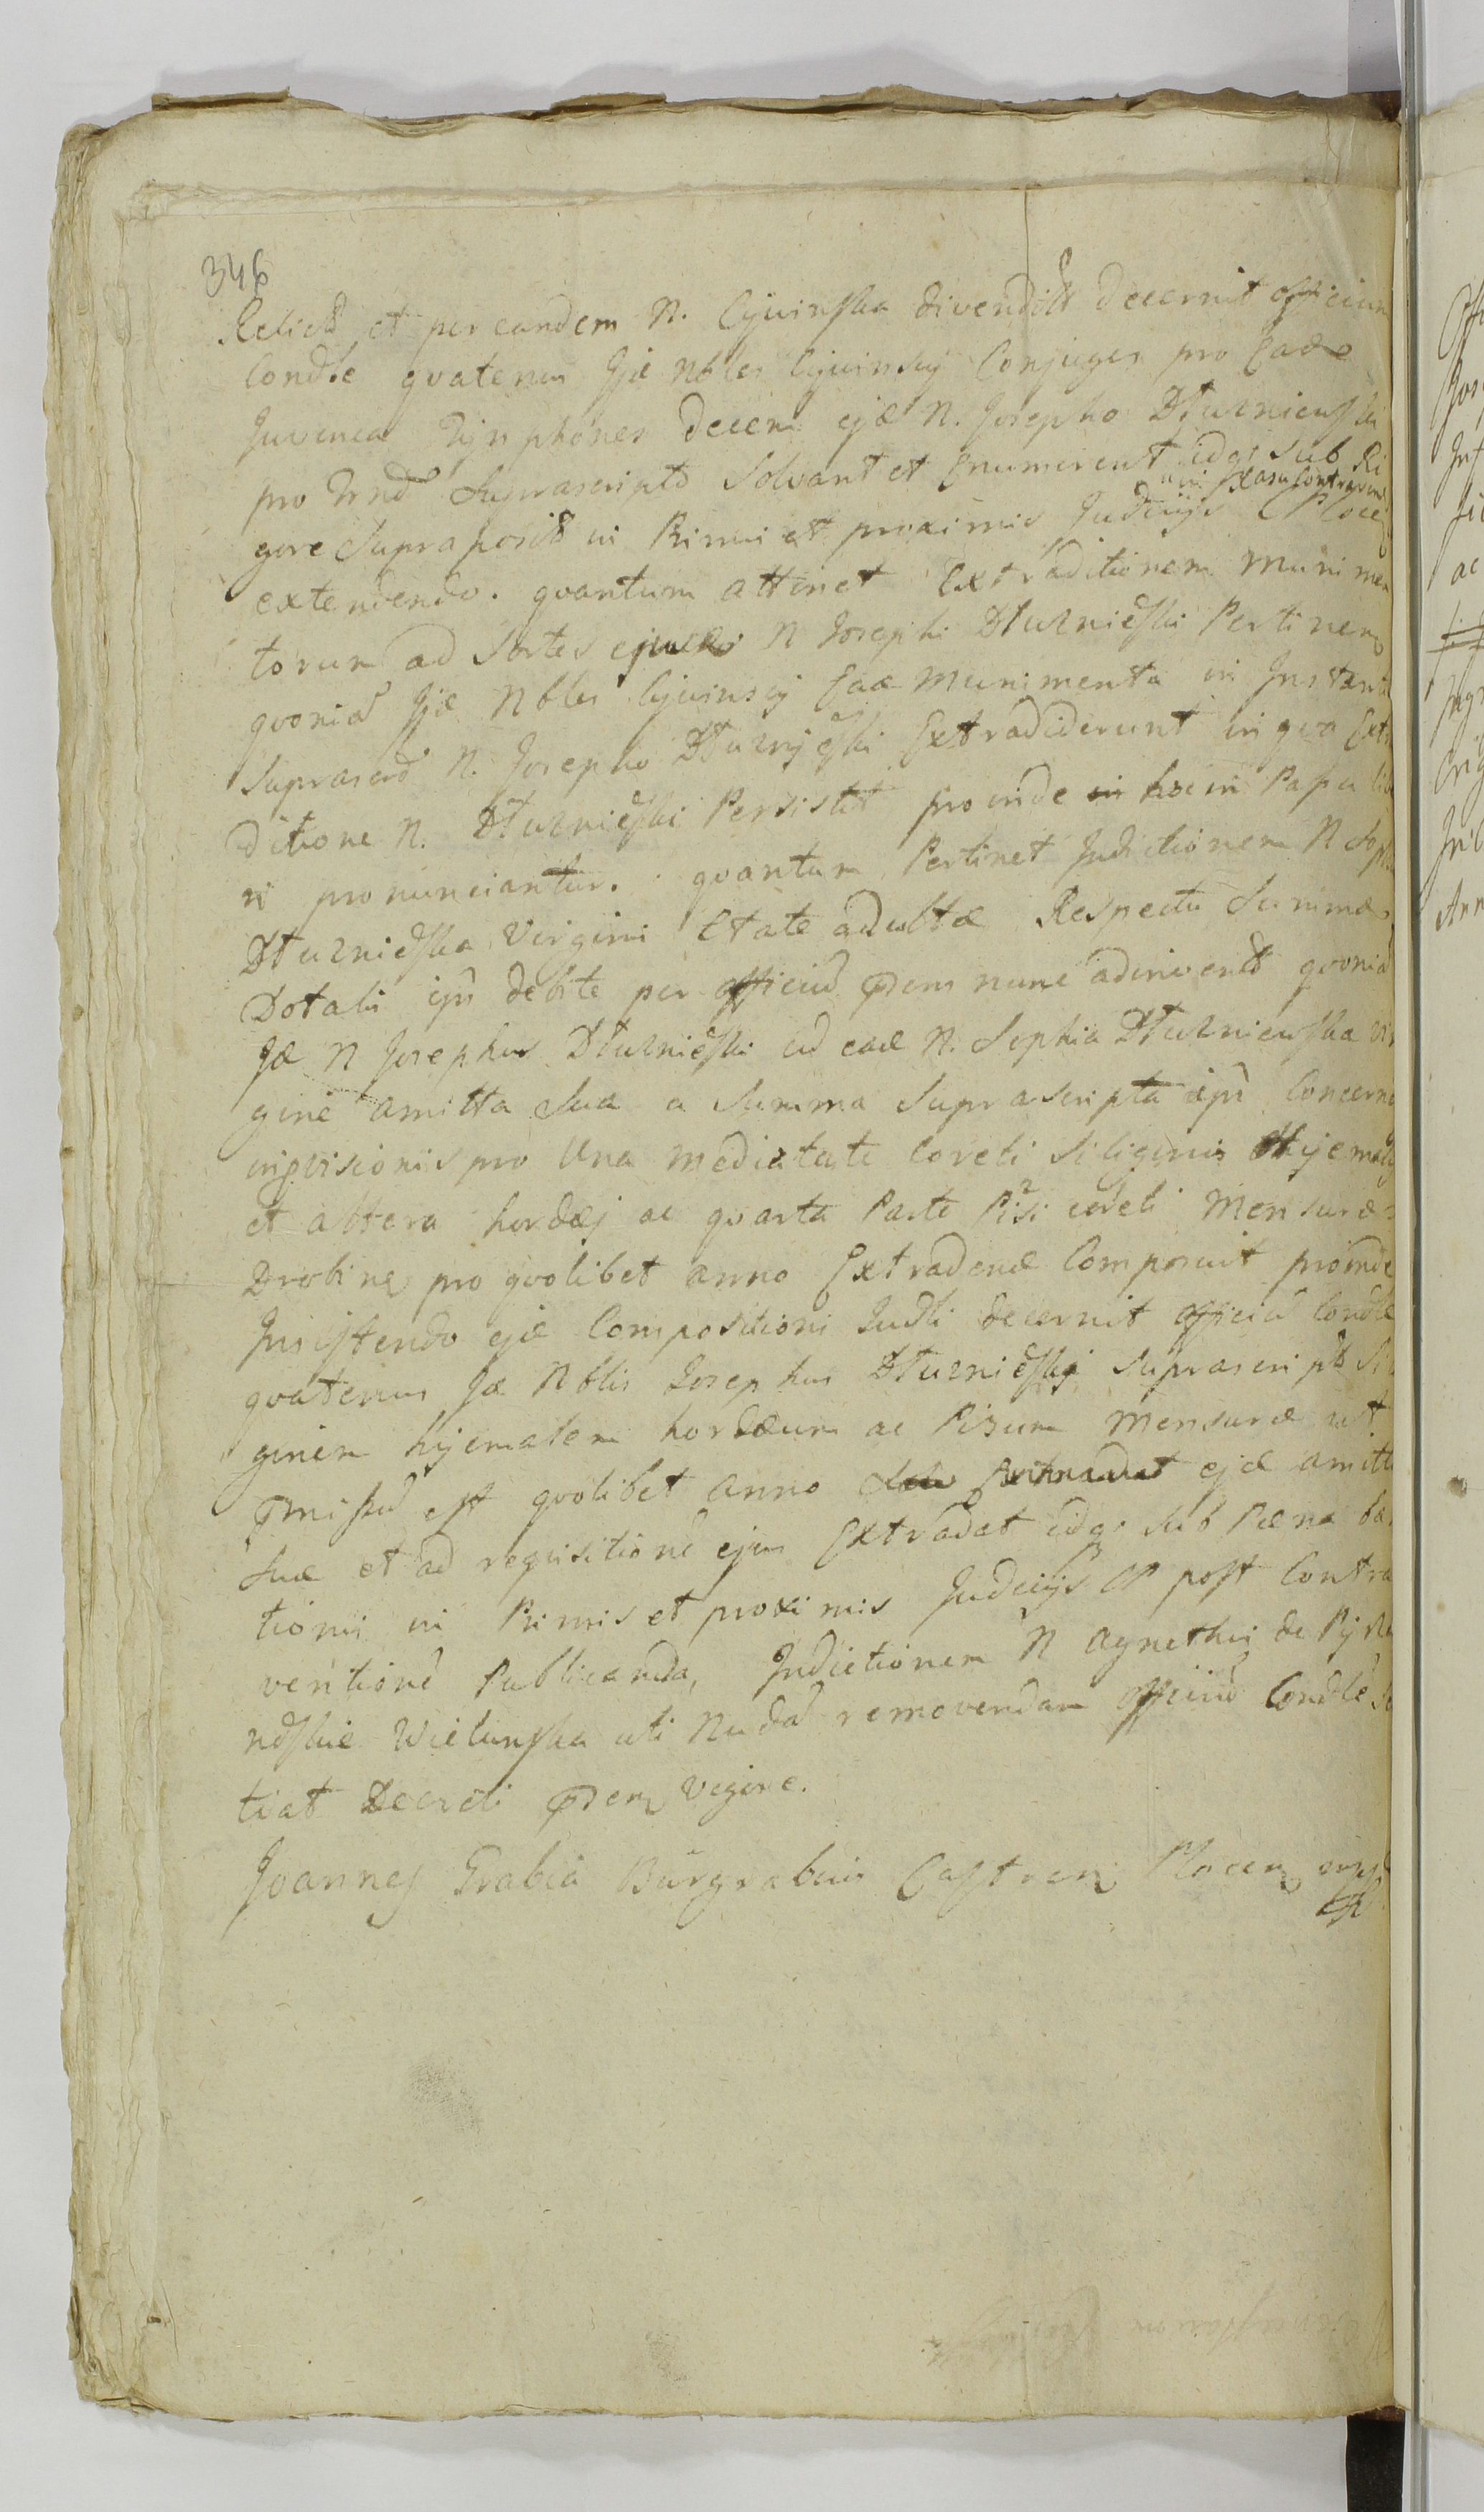 346
Relictã et per eandem N. Cywinska divendita decernit officium
Condle qvatenus Ijdē Nbles Cywinscij Conjuges pro Eade
Juvenca Tijnphones decem ejdē N. Josepho Dłuzniewski
pro Suprascripta Solvant et Enumerent idqe sub Ri
in Casu Contraven
gore Supraposito in Primis et proximis Judicijs CPlocen
extendendo. qvantum attinet Extraditionem munimen
torum ad Sortes N Josephi Dłuznieski Pertinen
qvoniã Ijdē Nbles Cywinscij Eadē munimenta in Instanti
Suprascrip N. Josepho Dłuznjeski Extradiderunt in qva Extra
ditione N. Dłuznieski Persistit proinde in hocin Passu libe
ri pronunciantur. qvantum Pertinet Indictionem N Soph
Dłuznieska Virgini Etate adultæ Respectu Summæ
Dotalis ipsi debite per officiũ pdens nunc adinventa qvoniã
Idē N Josephus Dłuznieski cũ eadē N. Sophia Dłuzniewska vir
gine amitta Sua a Summa Suprascripta ipsi Concerne
inqvisionis pro Una medietate Coreti Siliginis Hijemalis
et altera hordæj ac qvarta Parte Pisi coreti Mensuræ
Drobine pro qvolibet anno Extradend Composuit proinde
Insistendo ejdē Compositioni Judli decernit officiũ Condle
qvatenus Idē Nblis Josephus Dłuznieskij Suprascripta Sili
ginem hijemalem hordæum ac Pisum Mensuræ ut
pmissũ est qvolibet anno ejdē amitte
Suæ et ad reqvisitionē ejus Extradat idqe sub Pæna ban
tionis in Primis et proximis Judicijs CP post Contra
ventionē Publicanda, Indictionem N Agnethis de
Wielunska uti Nudã removendam officiũ Condle
tiat Decreti pden Vigore.
Joannes Grabia Burgrabius Castren Plocen